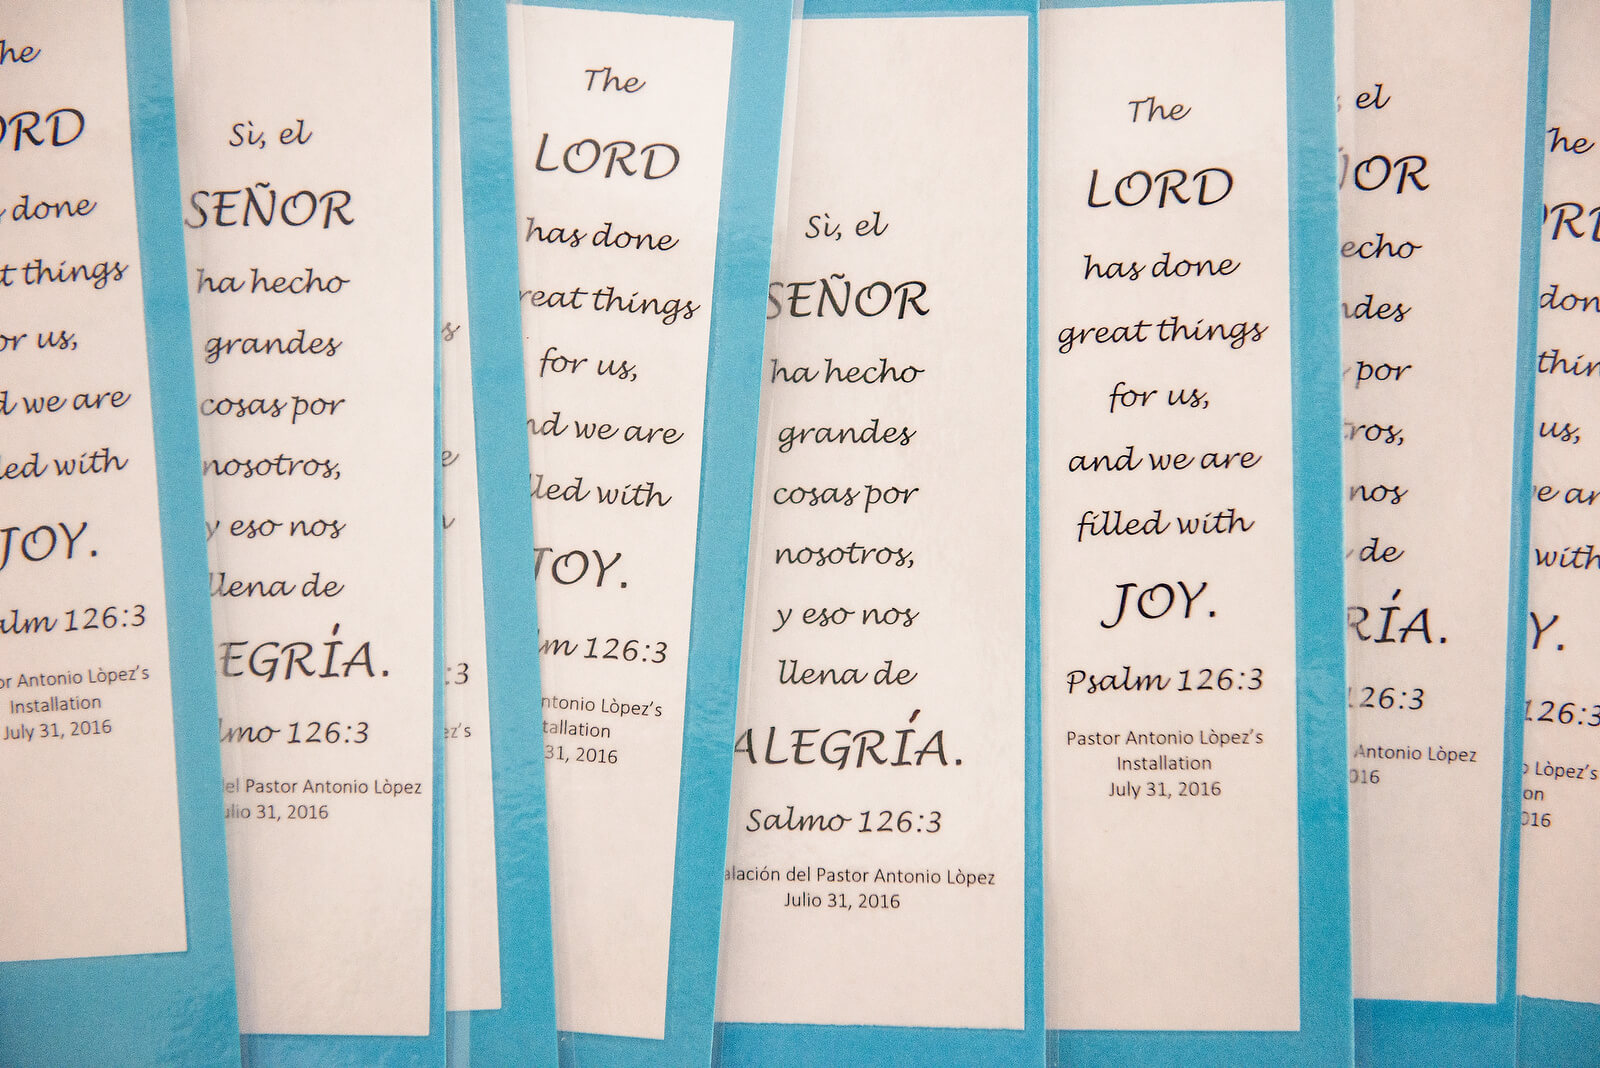 he
ORD
done
t things
or us,
d we are
led with
JOY.
alm 126:3
or Antonio Lòpez's
Installation
July 31, 2016
Sì, el
SEÑOR
ha hecho
grandes
cosas por
nosotros,
y eso nos
llena de
EGRÍA.
lmo 126:3
del Pastor Antonio Lòpez
Julio 31, 2016
s
e
:3
ez's
The
LORD
has done
reat things
for us,
nd we are
lled with
JOY.
lm 126:3
ntonio Lòpez's
tallation
31, 2016
Sì, el
SEÑOR
ha hecho
grandes
cosas por
nosotros,
y eso nos
llena de
ALEGRÍA.
Salmo 126:3
alación del Pastor Antonio Lòpez
Julio 31, 2016
The
LORD
has done
great things
for us,
and we are
filled with
JOY.
Psalm 126:3
Pastor Antonio Lòpez's
Installation
July 31, 2016
, el
ÑOR
echo
ndes
por
tros,
nos
de
RÍA.
126:3
Antonio Lòpez
016
he
ORD
don
thin
us,
e ar
with
Y.
126:3
Lòpez's
on
016